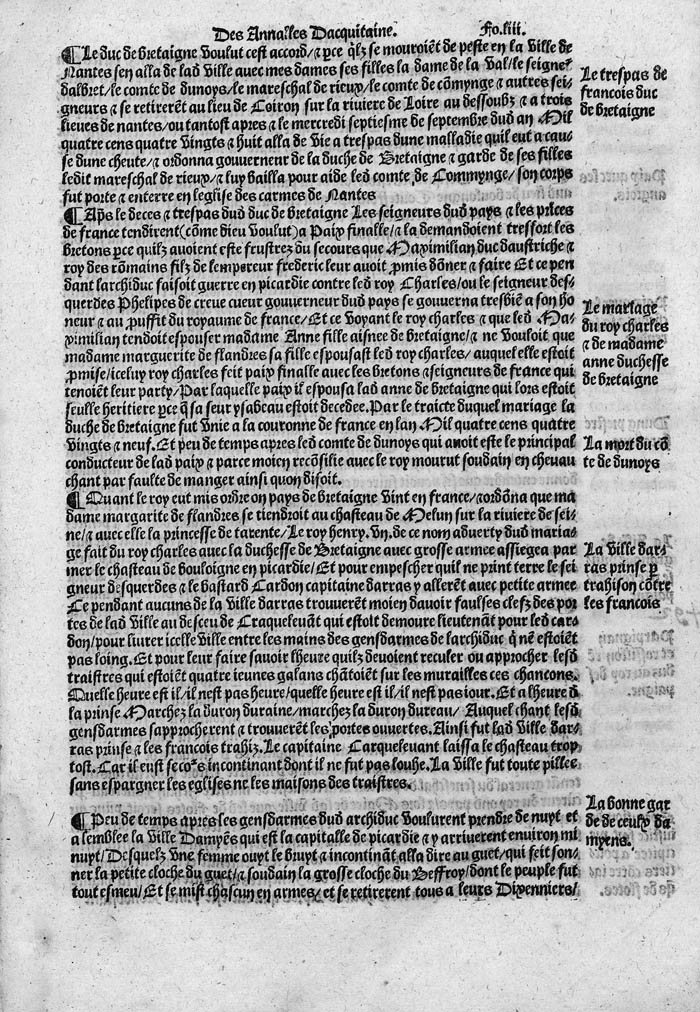 Des Annalles Dacquitaine. Fo.liii.
¶Le duc de bretaigne voulut cest accord/⁊ ꝑce q̄lz se mouroiēt de peste en la ville de
Nantes sen alla de lad ville auec mes dames ses filles la dame de la val/le seigne²
dalbret/le comte de dunoys/le mareschal de rieux/le comte de cōmynge ⁊ autres sei-
gneurs ⁊ se retirerēt au lieu de Coiron sur la riuiere de Loire au dessoubz ⁊ a trois
lieues de nantes/ou tantost apres ⁊ le mercredi septiesme de septembre dud an Mil
quatre cens quatre vingts ⁊ huit alla de vie a trespas dune malladie quil eut a cau-
se dune cheute/⁊ ordonna gouuerneur de la duche de Bretaigne ⁊ garde de ses filles
ledit mareschal de rieux/⁊ luy bailla pour aide led comte de Commynge/son corps
fut porte ⁊ enterre en leglise des carmes de Nantes
Le trespas de
francois duc
de bretaigne
¶Aps̄ le deces ⁊ trespas dud duc de bretaigne Les seigneurs dud pays ⁊ les prīces
de france tendirent(cōme dieu voulut)a Paix finalle/⁊ la demandoient tressort les
bretons ꝑce quilz auoient este frustrez du secours que Maximilian duc daustriche ⁊
roy des rōmains filz de lempereur frederic leur auoit ꝓmis dōner ⁊ faire Et ce pen
dant larchiduc faisoit guerre en picardie contre led roy Charles/ou le seigneur des²
querdes Phelipes de creue cueur gouuerneur dud pays se gouuerna tresbiē a son ho
neur ⁊ au ꝓuffit du royaume de france/Et ce voyant le roy charles ⁊ que led Ma-
ximilian tendoit espouser madame Anne fille aisnee de bretaigne/⁊ ne vouloit que
madame marguerite de flandres sa fille espousast led roy charles/auquel elle estoit
ꝓmise/iceluy roy charles feit paix finalle auec les bretons ⁊ seigneurs de france qui
tenoiēt leur party/Par laquelle paix il espousa lad anne de bretaigne qui lors estoit
seulle heritiere ꝑce q̄ sa seur ysabeau estoit decedee.Par le traicte duquel mariage la
duche de bretaigne fut vnie a la couronne de france en lan Mil quatre cens quatre
vingts ⁊ neuf.Et peu de temps apres led comte de dunoys qui auoit este le principal
conducteur de lad paix ⁊ parce moien recōsilie auec le roy mourut soudain en cheuau
chant par faulte de manger ainsi quon disoit.
Le mariage
du roy charles
⁊ de madame
anne duchesse
de bretaigne
La mort du cō
te de dunoys
¶Quant le roy eut mis ordre on pays de bretaigne vint en france/⁊ordōna que ma
dame margarite de flandres se tiendroit au chasteau de Melun sur la riuiere de sei-
ne/⁊ auec elle la princesse de tarente/Le roy henry.vii.de ce nom aduerty dud maria-
ge fait du roy charles auec la duchesse de Bretaigne auec grosse armee assiegea par
mer le chasteau de bouloigne en picardie/Et pour empescher quil ne print terre le sei
gneur desquerdes ⁊ le bastard Cardon capitaine darras y allerēt auec petite armee
Ce pendant aucuns de la ville darras trouuerēt moien dauoir faulses clefz des por
tes de lad ville au desceu de Craqueleuāt qui estoit demoure lieutenāt pour led car-
don/pour liurer icelle ville entre les mains des gensdarmes de larchiduc q̄ nē estoiēt
pas loing.Et pour leur faire sauoir lheure quilz deuoient reculer ou approcher lesd
traistres qui estoiēt quatre ieunes galans chātoiēt sur les murailles ces chancons.
Quelle heure est il/il nest pas heure/quelle heure est il/il nest pas iour.Et a lheure d
la prinse Marchez la duron duraine/marchez la duron dureau/ Auquel chant lesd
gensdarmes sapprocherent ⁊ trouuerēt les portes ouuertes.Ainsi fut lad ville dar-
ras prinse ⁊ les francois trahiz.Le capitaine Carqueleuant laissa le chasteau trop
tost.Car il eust seco²s incontinant dont il ne fut pas louhe.La ville fut toute pillee
sans espargner les eglises ne les maisons des traistres.
La ville dar-
ras prinse ꝑ
trahison cōtre
les francois
¶Peu de temps apres les gensdarmes dud archiduc voulurent prendre de nuyt et
a lemblee la ville Damyēs qui est la capitalle de picardie ⁊ y arriuerent enuiron mi
nuyt/Desquelz vne femme ouyt le bruyt ⁊ incontināt alla dire au guet/qui feit son-
ner la petite cloche du guet/⁊ soudain la grosse cloche du Beffroy/dont le peuple fut
tout esmeu/Et se mist chascun en armes/et se retirerent tous a leurs Dixenniers/
La bonne gar
de de ceulx da
myens.